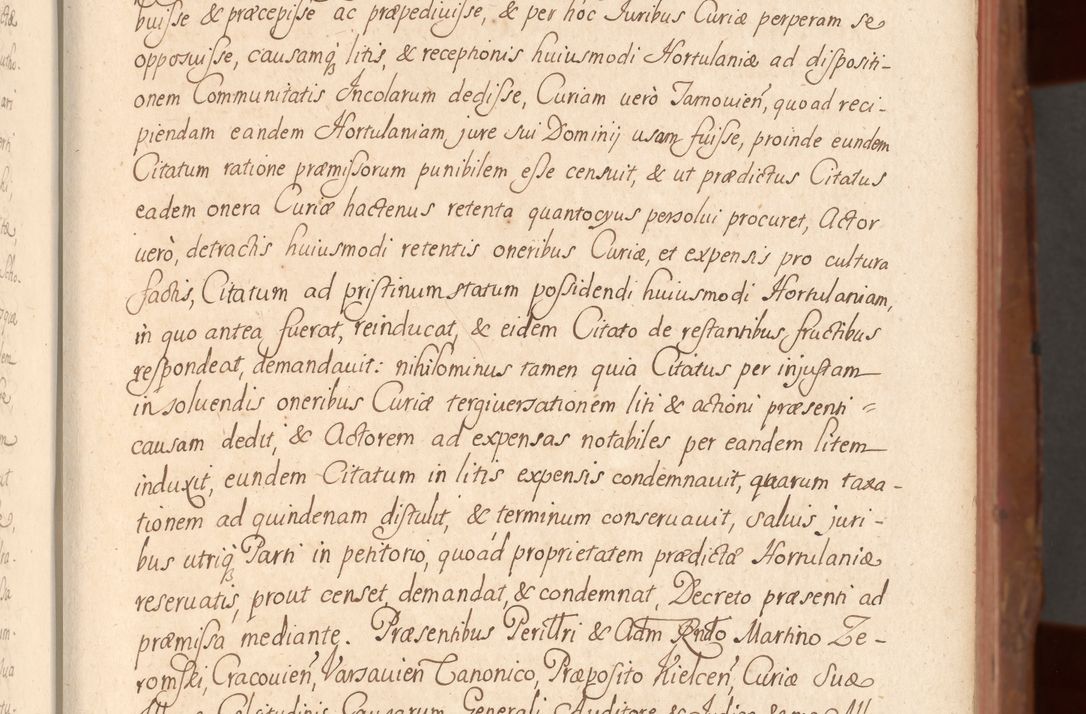 buisse & præcepisse ac præpedivisse, & per hoc Iuribus Curiæ perperam se
opposuisse, causamqꝫ litis, & receptionis huiusmodi Hortulaniæ ad dispositi-
onem Communitatis Incolarum dedisse, Curiam uerò Tarnouien̄, quoad reci-
piendam eandem Hortulaniam jure sui Dominij usam fuisse, proinde eundem
Citatum ratione præmissorum punibilem esse censuit, & ut prædictus Citatus
eadem onera Curiæ hactenus retenta quantocyus persolui procuret, Actor
uerò, detractis huiusmodi retentis oneribus Curiæ, et expensis pro cultura
factis, Citatum ad pristinum statum possidendi huiusmodi Hortulaniam,
in quo antea fuerat, reinducat, & eidem Citato de restantibus fructibus
respondeat, demandauit: nihilominus tamen quia Citatus per injustam
in soluendis oneribus Curiæ tergiuersationem liti & actioni præsenti =
causam dedit, & Actorem ad expensas notabiles per eandem litem
induxit, eundem Citatum in litis expensis condemnauit, quarum taxa-
tionem ad quindenam distulit, & terminum conseruauit, saluis juri-
bus utriqꝫ Parti in petitorio, quoad proprietatem prædictæ Hortulaniæ
reseruatis, prout censet, demandat, & condemnat, Decreto præsenti ad
præmissa mediante. Præsentibus Perillri & Adm Rndo Martino Ze-
romski, Cracouien̄, Varsauien̄ Canonico, Præposito Kielcen̄, Curiæ Suæ
Celsitudinis Causarum Generali Auditore & Iudice